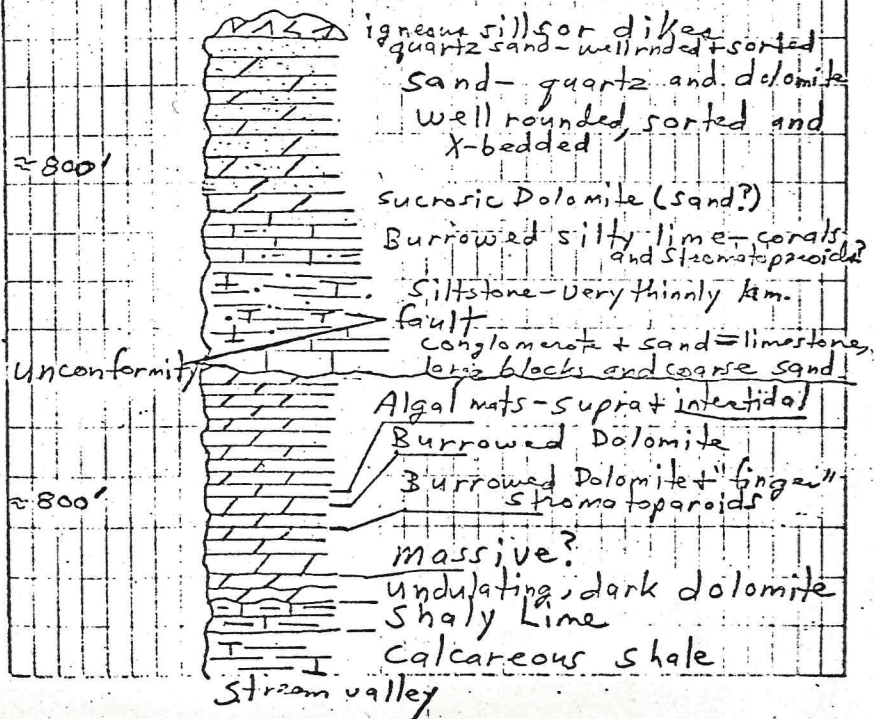 igneous sills or dikes
quartz sand - well rnded + sorted
sand - quartz and dolomite
well rounded, sorted and
X-bedded
≈ 800'
sucrosic Dolomite (sand?)
Burrowed silty lime - corals
and Stromatoparoids?
Siltstone - very thinnly lam.
fault
conglomerate + sand = limestone,
large blocks and coarse sand
unconformity
Algal mats - supra + intertidal
Burrowed Dolomite
Burrowed Dolomite + "finger"
stromatoparoids
≈ 800'
massive?
undulating, dark dolomite
Shaly Lime
Calcareous shale
Stream valley